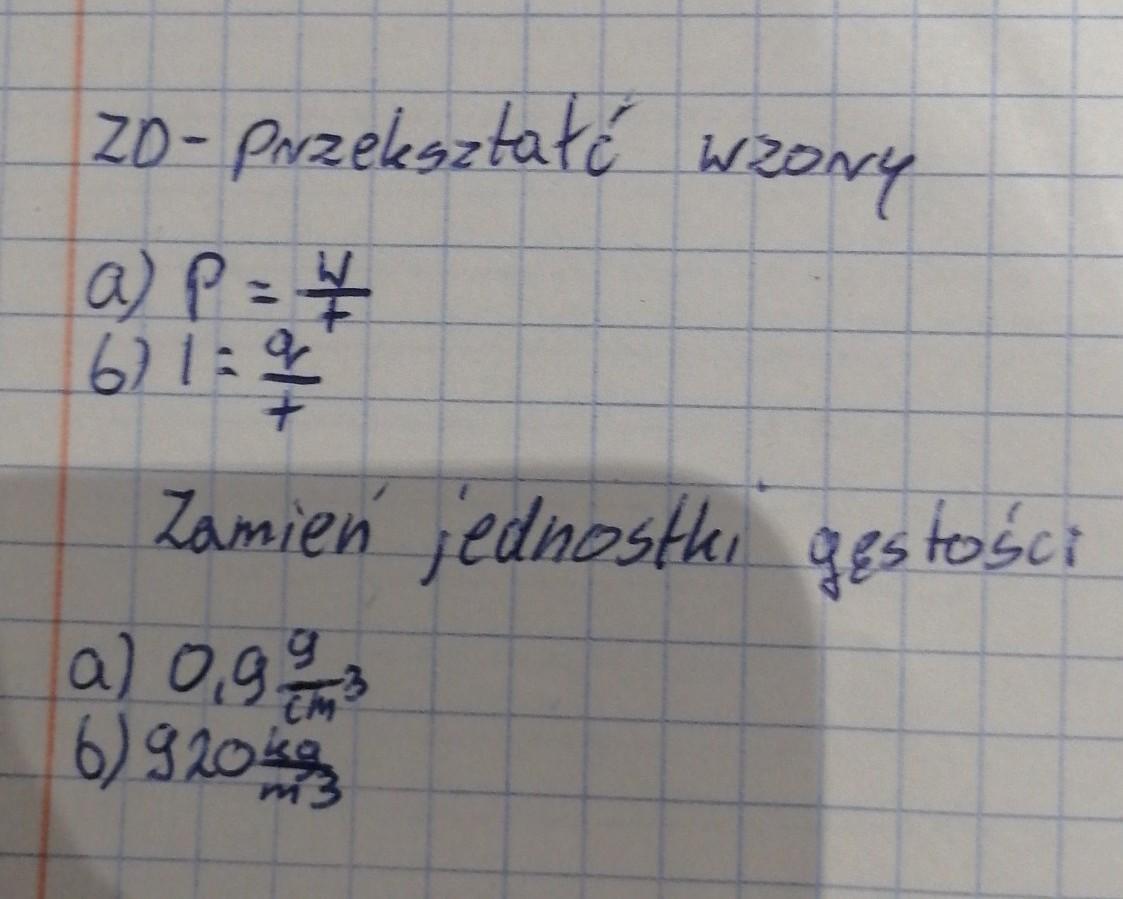 ZD - przekształć wzory
a) P = W/t
b) I = q/t
Zamień jednostki gęstości
a) 0,9 g/cm³
b) 920 kg/m3